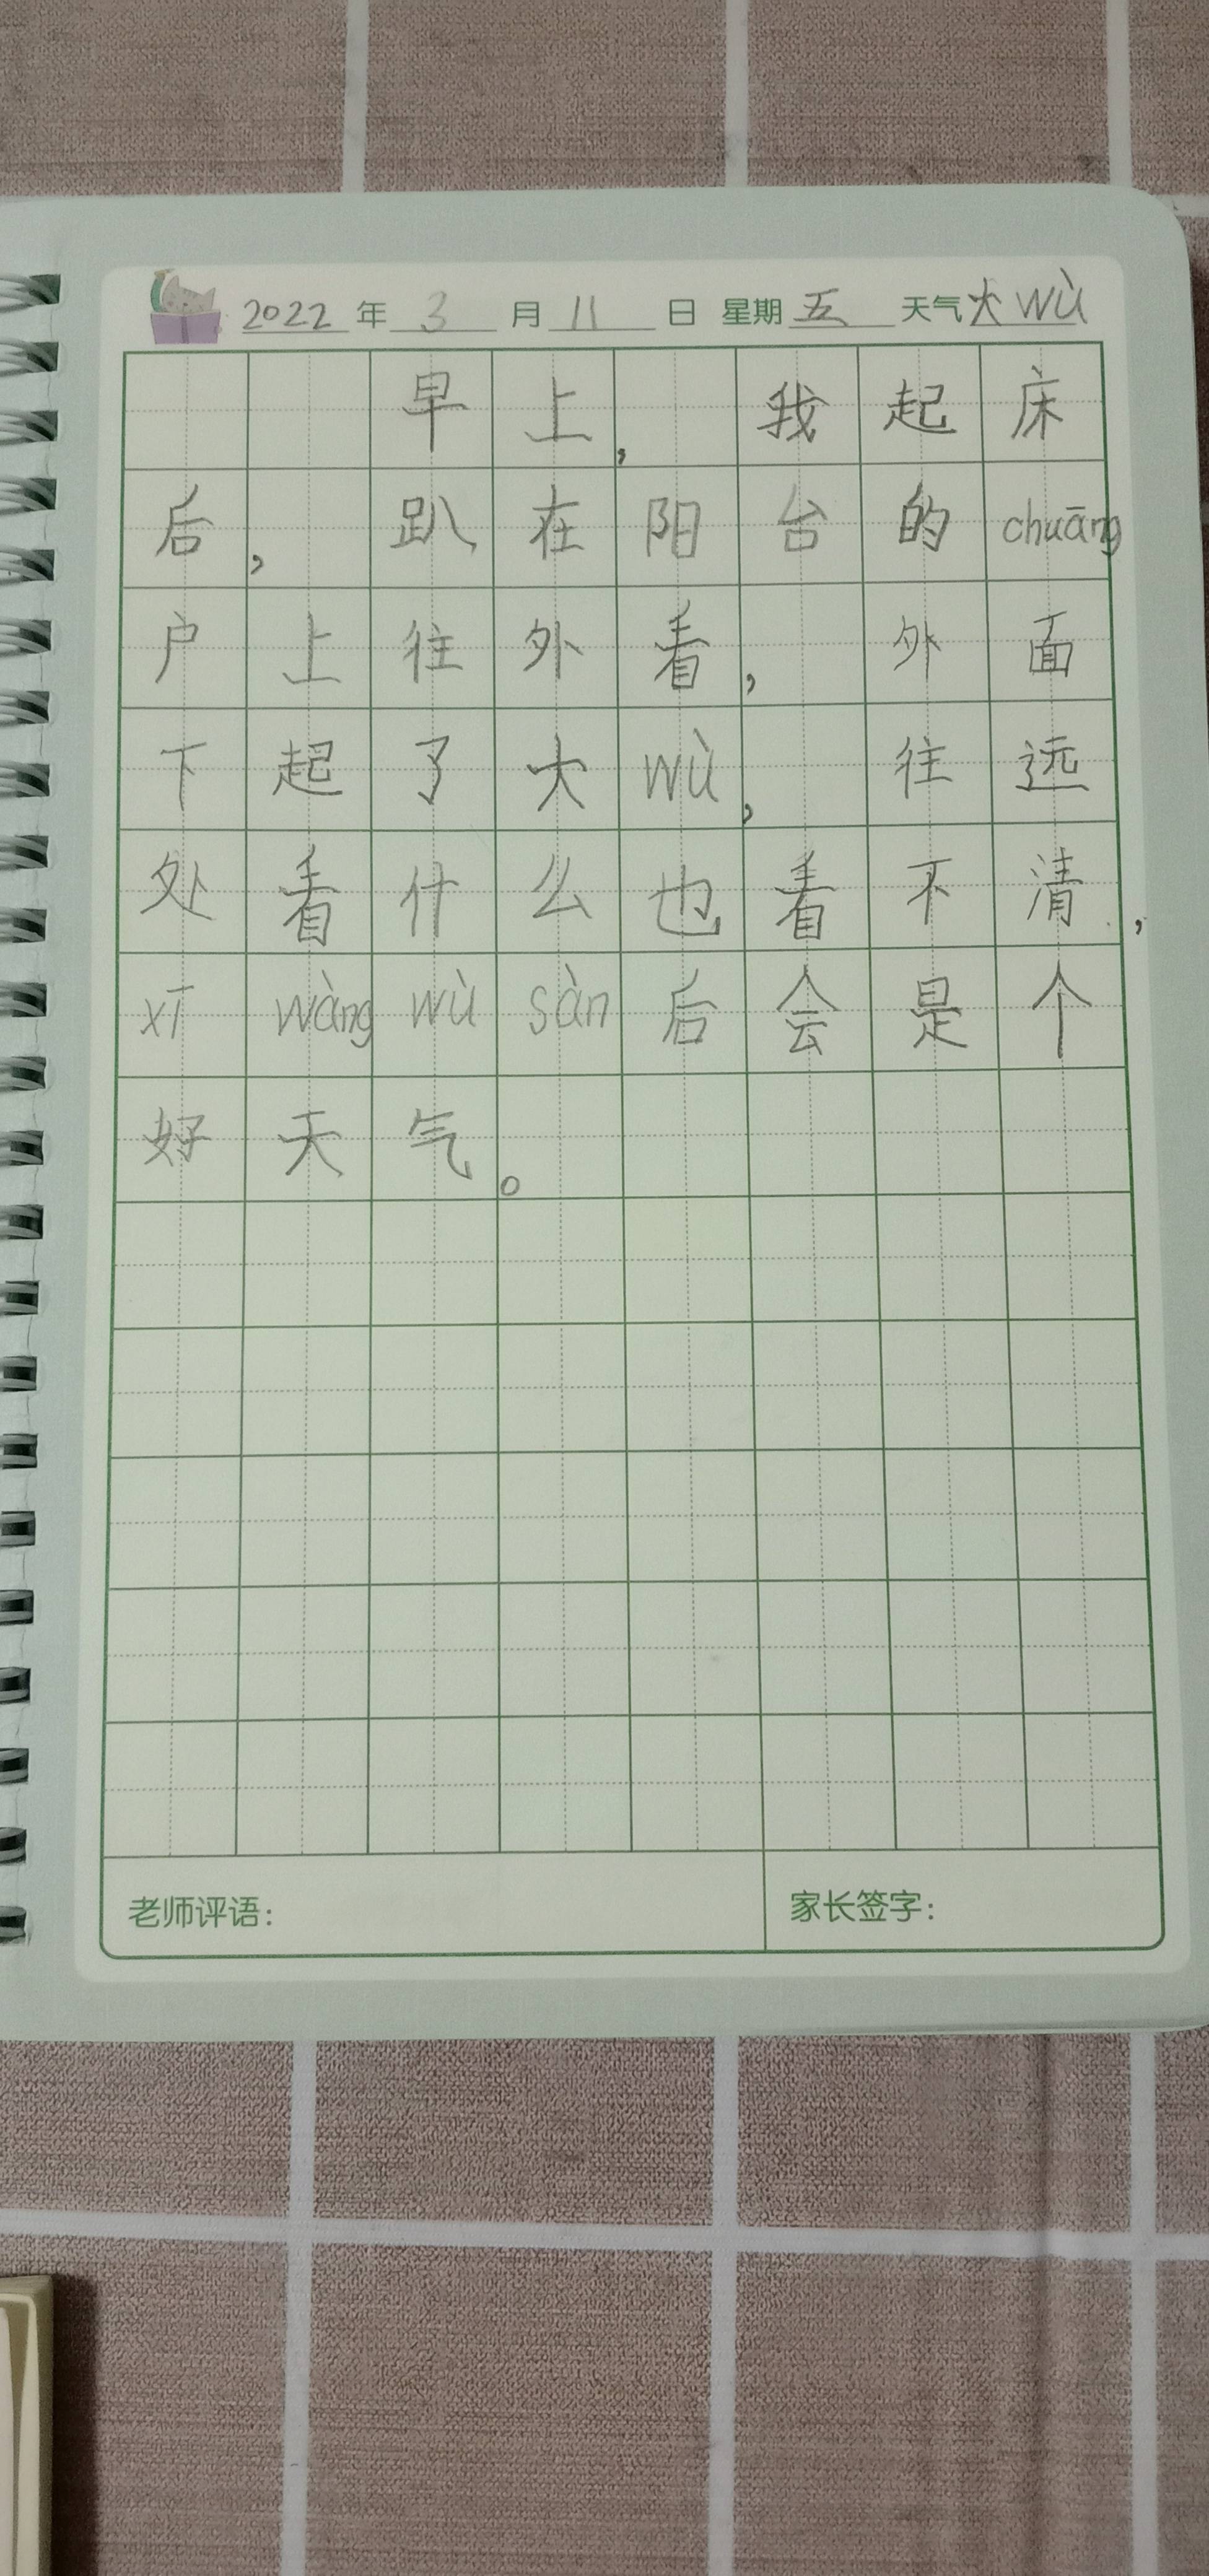 2022年3月11日 星期五 天气大wù
早上,我起床
后,趴在阳台的chuāng
户上往外看,外面
下起了大wù,往远
处看什么也看不清,
xī wàng wù sàn后会是个
好天气。
老师评语: 家长签字: